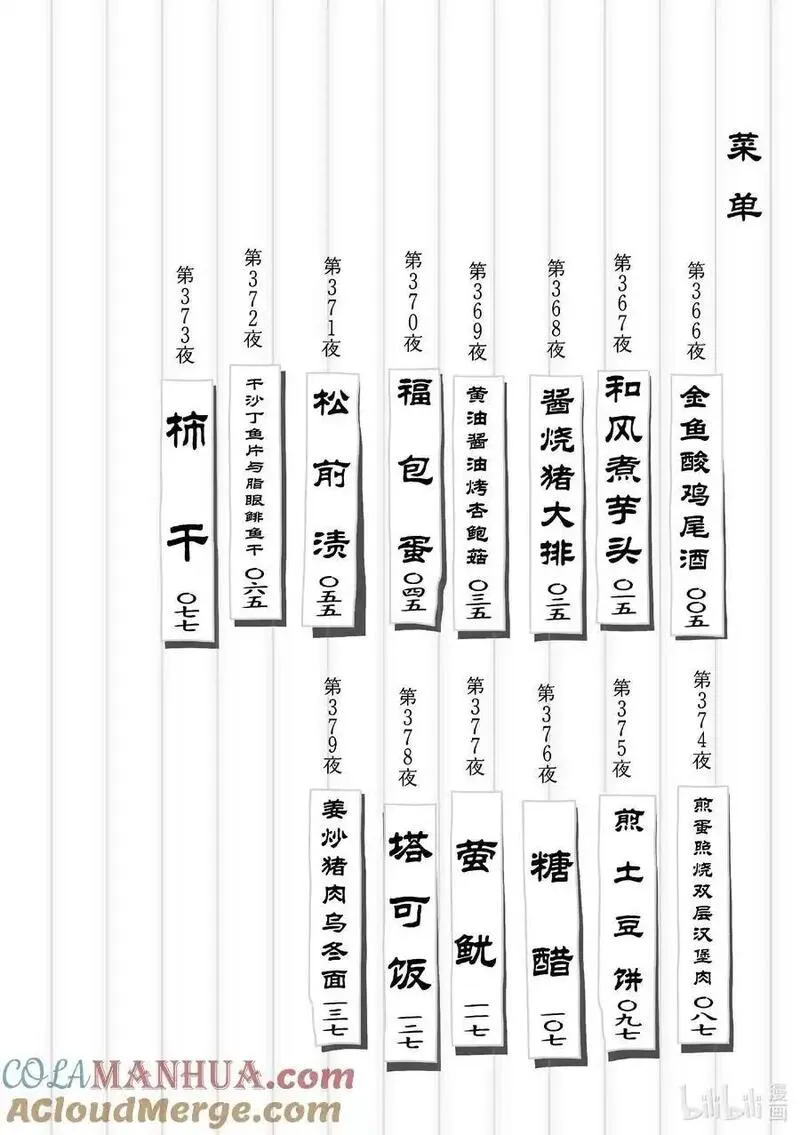 菜单
第366夜
金鱼酸鸡尾酒 〇〇五
第367夜
和风煮芋头 〇一五
第368夜
酱烧猪大排 〇二五
第369夜
黄油酱油烤杏鲍菇 〇三五
第370夜
福包蛋 〇四五
第371夜
松前渍 〇五五
第372夜
干沙丁鱼片与脂眼鲱鱼干 〇六五
第373夜
柿干 〇七七
第374夜
煎蛋照烧双层汉堡肉 〇八七
第375夜
煎土豆饼 〇九七
第376夜
糖醋 一〇七
第377夜
萤鱿 一一七
第378夜
塔可饭 一二七
第379夜
姜炒猪肉乌冬面 一三七
COLAMANHUA.com
ACloudMerge.com
bilibili 漫画